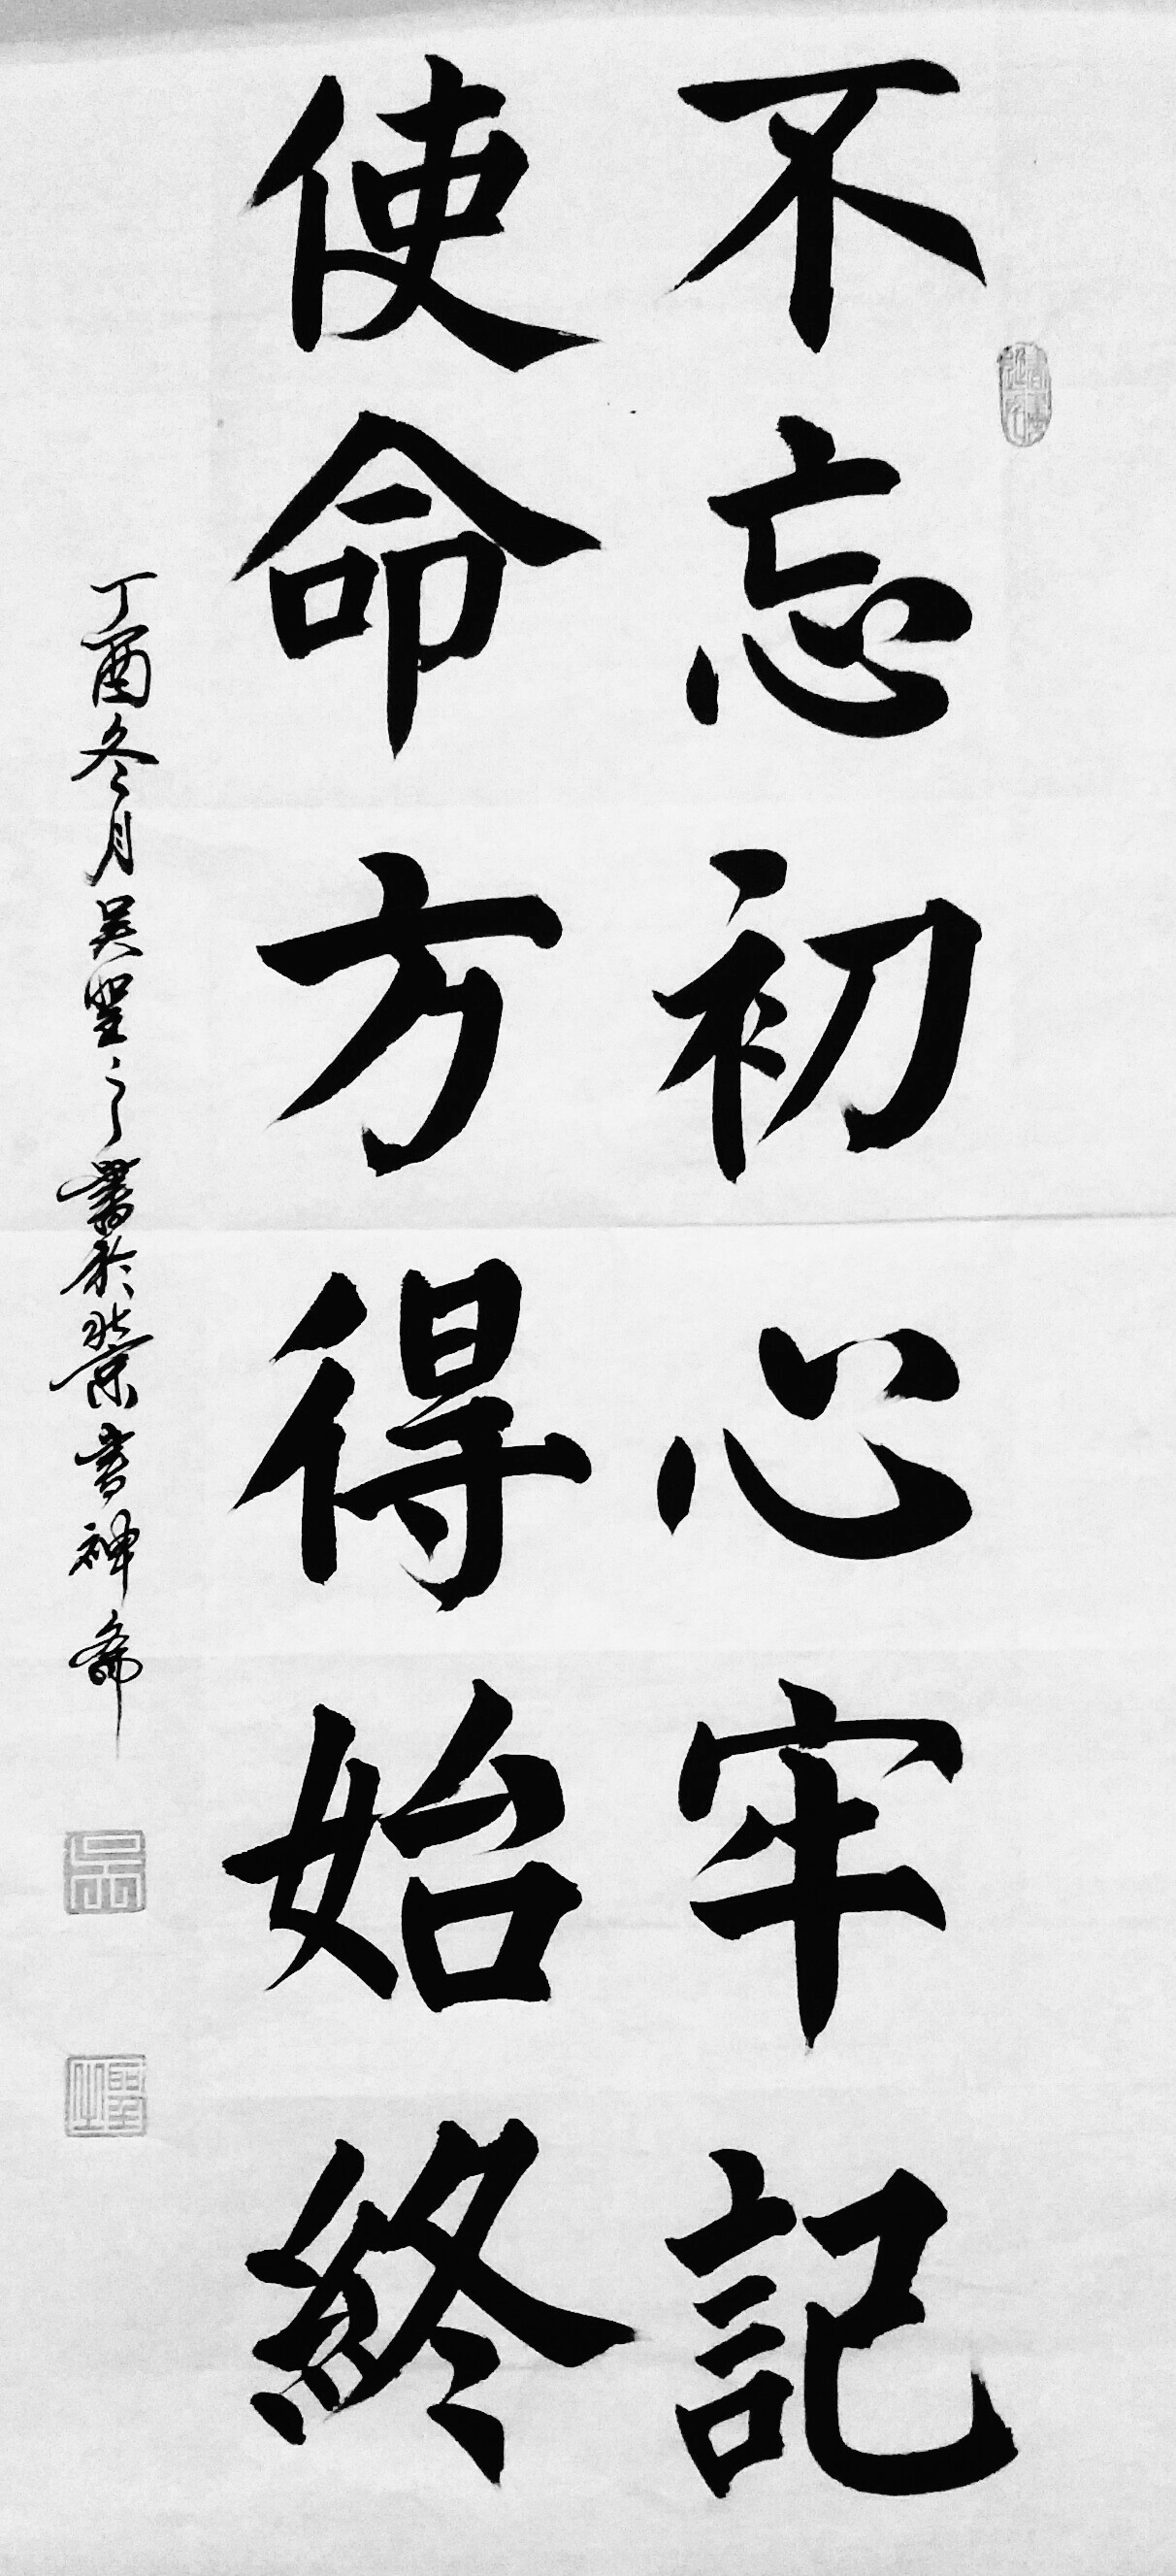 不忘初心牢記
使命方得始終
丁酉冬月吳聖之書於燕京書神齋